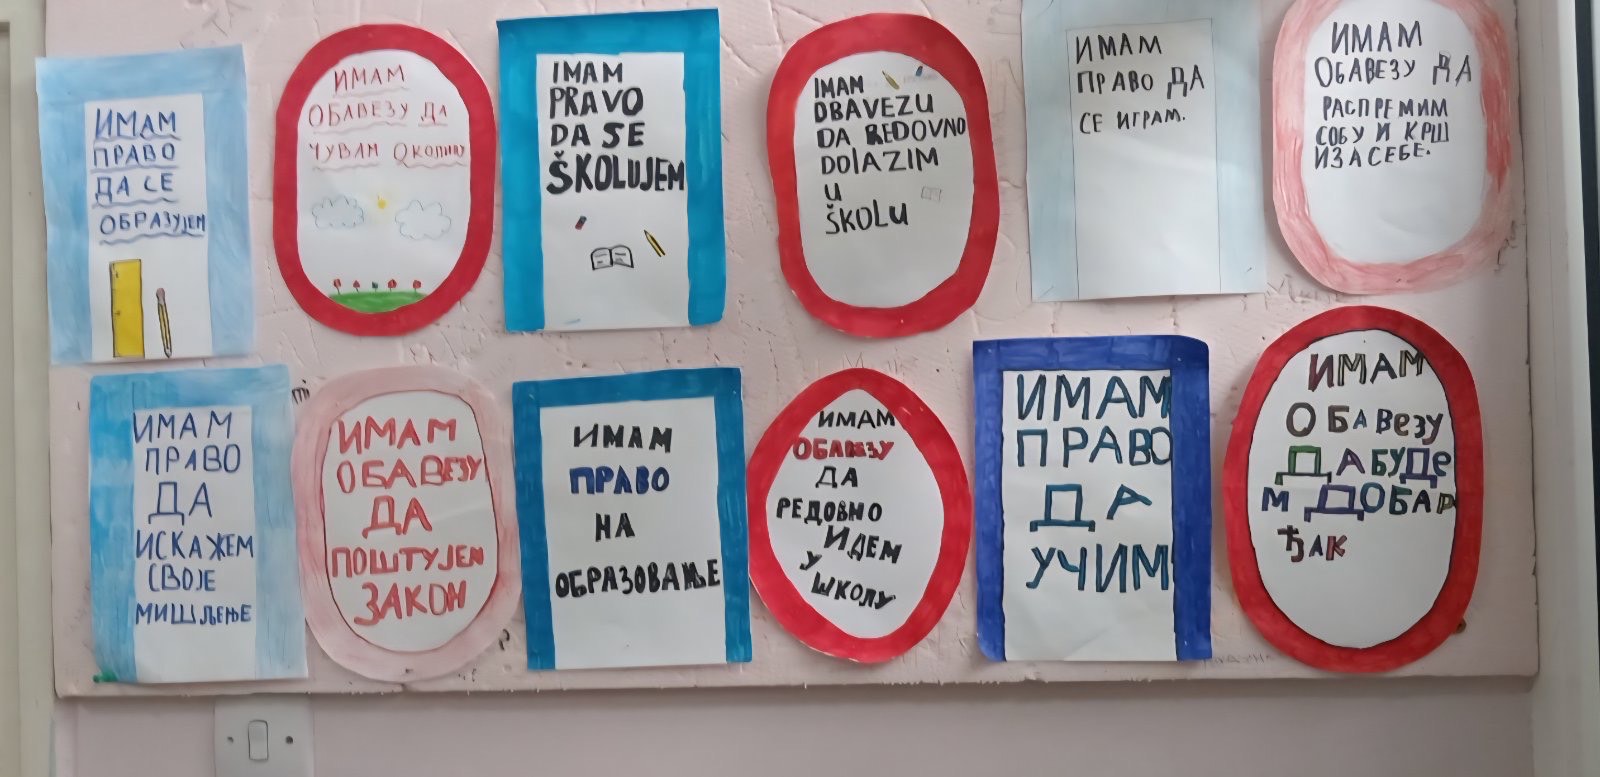 ИМАМ
ПРАВО
ДА СЕ
ОБРАЗУЈЕМ
ИМАМ
ОБАВЕЗУ ДА
ЧУВАМ ОКОЛИНУ
IMAM
PRAVO
DA SE
ŠKOLUJEM
IMAM
OBAVEZU
DA REDOVNO
DOlAZIM
U
ŠKOLU
ИМАМ
ПРАВО ДА
СЕ ИГРАМ.
ИМАМ
ОБАВЕЗУ ДА
РАСПРЕМИМ
СОБУ И КРШ
ИЗА СЕБЕ.
ИМАМ
ПРАВО
ДА
ИСКАЖЕМ
СВОЈЕ
МИШЉЕЊЕ
ИМАМ
ОБАВЕЗУ
ДА
ПОШТУЈЕМ
ЗАКОН
ИМАМ
ПРАВО
НА
ОБРАЗОВАЊЕ
ИМАМ
ОБАВЕЗУ
ДА
РЕДОВНО
ИДЕМ
У
ШКОЛУ
ИМАМ
ПРАВО
ДА
УЧИМ
ИМАМ
ОБАВеЗУ
ДА БУДе
М ДОБАР
ЂАК